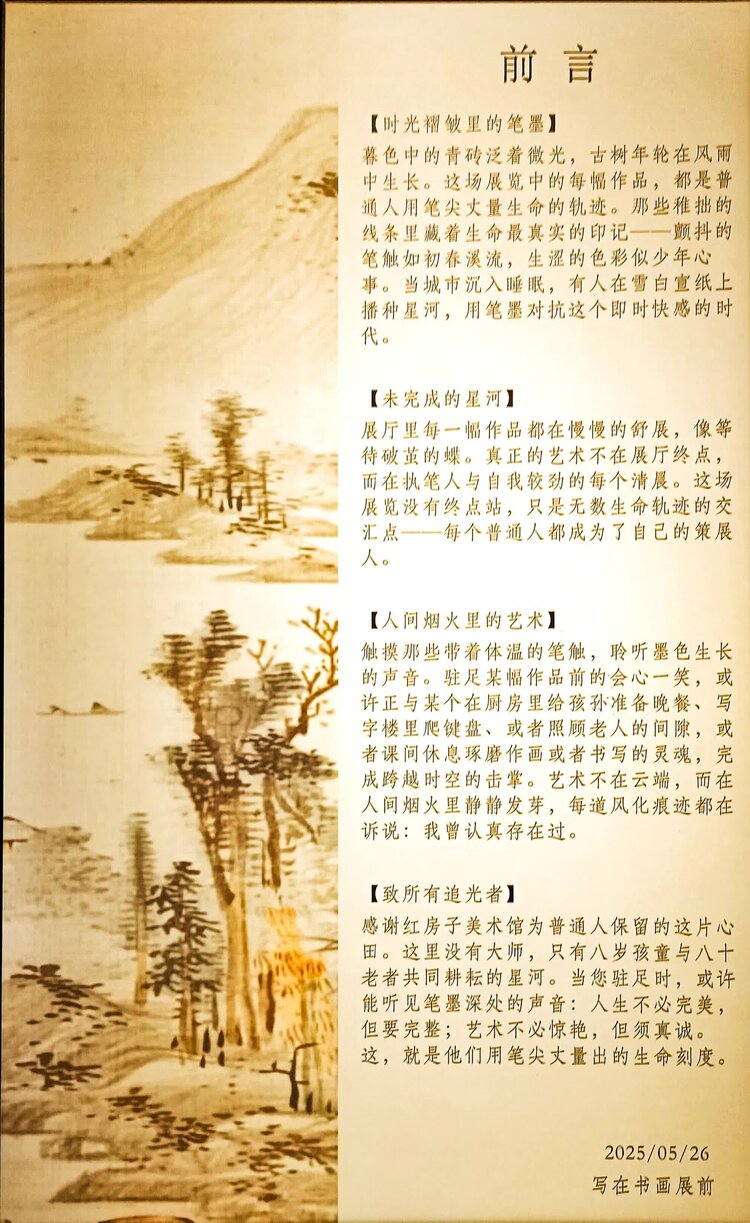 前言
【时光褶皱里的笔墨】
暮色中的青砖泛着微光，古树年轮在风雨
中生长。这场展览中的每幅作品，都是普
通人用笔尖丈量生命的轨迹。那些稚拙的
线条里藏着生命最真实的印记——颤抖的
笔触如初春溪流，生涩的色彩似少年心
事。当城市沉入睡眠，有人在雪白宣纸上
播种星河，用笔墨对抗这个即时快感的时
代。
【未完成的星河】
展厅里每一幅作品都在慢慢的舒展，像等
待破茧的蝶。真正的艺术不在展厅终点，
而在执笔人与自我较劲的每个清晨。这场
展览没有终点站，只是无数生命轨迹的交
汇点——每个普通人都成为了自己的策展
人。
【人间烟火里的艺术】
触摸那些带着体温的笔触，聆听墨色生长
的声音。驻足某幅作品前的会心一笑，或
许正与某个在厨房里给孩孙准备晚餐、写
字楼里爬键盘、或者照顾老人的间隙，或
者课间休息琢磨作画或者书写的灵魂，完
成跨越时空的击掌。艺术不在云端，而在
人间烟火里静静发芽，每道风化痕迹都在
诉说：我曾认真存在过。
【致所有追光者】
感谢红房子美术馆为普通人保留的这片心
田。这里没有大师，只有八岁孩童与八十
老者共同耕耘的星河。当您驻足时，或许
能听见笔墨深处的声音：人生不必完美，
但要完整；艺术不必惊艳，但须真诚。
这，就是他们用笔尖丈量出的生命刻度。
2025/05/26
写在书画展前